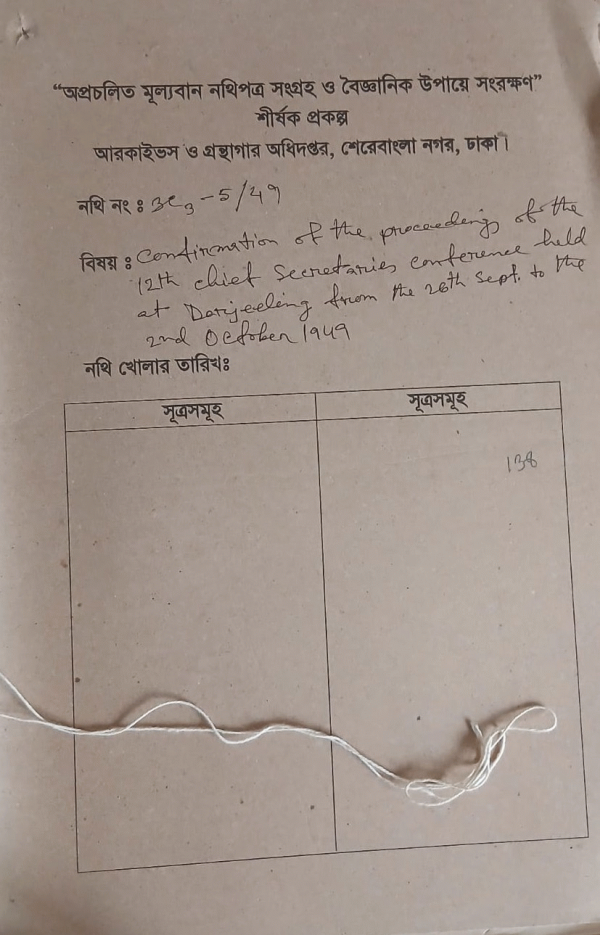 “অপ্রচলিত মূল্যবান নথিপত্র সংগ্রহ ও বৈজ্ঞানিক উপায়ে সংরক্ষণ”
শীর্ষক প্রকল্প
আরকাইভস ও গ্রন্থাগার অধিদপ্তর, শেরেবাংলা নগর, ঢাকা।
নথি নং ঃ -5/49
বিষয় ঃ Confirmation of the proceedings of the
12th chief Secretaries conference held
at Darjeeling from the 26th Sept. to the
2nd October 1949
নথি খোলার তারিখঃ
সূত্রসমূহ সূত্রসমূহ
138